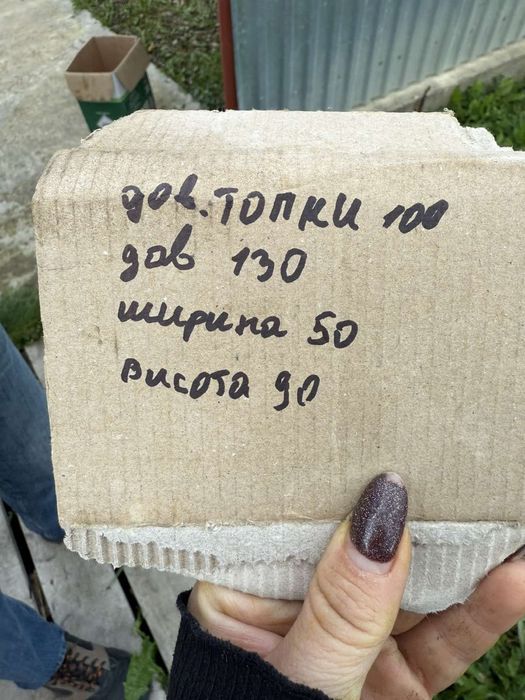 дов. ТОПКИ 100
дов 130
ширина 50
висота 90